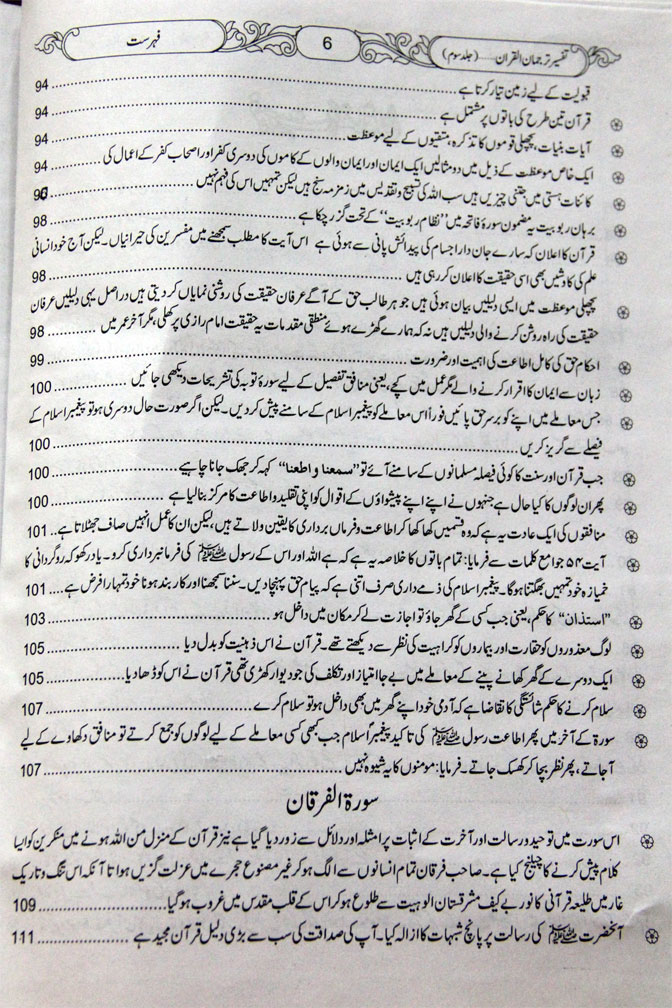 تفسیر ترجمان القرآن ـــ (جلد سوم) 6 فہرست
قبولیت کے لیے زمین تیار کرتا ہے ........ 94
قرآن تین طرح کی باتوں پر مشتمل ہے ........ 94
آیات بینات، پچھلی قوموں کا تذکرہ، متقیوں کے لیے موعظت ........ 94
ایک خاص موعظت کے ذیل میں دو مثالیں ایک ایمان اور ایمان والوں کے کاموں کی دوسری کفر اور اصحاب کفر کے اعمال کی ........ 94
کائنات ہستی میں جتنی چیزیں ہیں سب اللہ کی تسبیح و تقدیس میں زمزمہ سنج ہیں لیکن تمہیں اس کی فہم نہیں ........ 96
برہان ربوبیت یہ مضمون سورۂ فاتحہ میں ”نظام ربوبیت“ کے تحت گزر چکا ہے ........ 98
قرآن کا اعلان کہ سارے جان دار اجسام کی پیدائش پانی سے ہوئی ہے اس آیت کا مطلب سمجھنے میں مفسرین کی حیرانیاں۔ لیکن آج خود انسانی
علم کی کاوشیں بھی اسی حقیقت کا اعلان کر رہی ہیں ........ 98
پچھلی موعظت میں ایسی دلیلیں بیان ہوئی ہیں جو ہر طالب حق کے آگے عرفان حقیقت کی روشنی نمایاں کر دیتی ہیں دراصل یہی دلیلیں عرفان
حقیقت کی راہ روشن کرنے والی دلیلیں ہیں نہ کہ ہمارے گھڑے ہوئے منطقی مقدمات یہ حقیقت امام رازی پر کھلی، مگر آخر عمر میں ........ 98
احکام حق کی کامل اطاعت کی اہمیت اور ضرورت ........ 99
زبان سے ایمان کا اقرار کرنے والے مگر عمل میں کچے، یعنی منافق تفصیل کے لیے سورۂ توبہ کی تشریحات دیکھی جائیں ........ 100
جس معاملے میں اپنے کو برسر حق پائیں فوراً اس معاملے کو پیغمبر اسلام کے سامنے پیش کر دیں۔ لیکن اگر صورت حال دوسری ہو تو پیغمبر اسلام کے
فیصلے سے گریز کریں ........ 100
جب قرآن اور سنت کا کوئی فیصلہ مسلمانوں کے سامنے آئے تو ”سمعنا و اطعنا“ کہہ کر جھک جانا چاہیے ........ 100
پھر ان لوگوں کا کیا حال ہے جنہوں نے اپنے اپنے پیشواؤں کے اقوال کو اپنی تقلید و اطاعت کا مرکز بنا لیا ہے ........ 100
منافقوں کی ایک عادت یہ ہے کہ وہ قسمیں کھا کھا کر اطاعت و فرماں برداری کا یقین دلاتے ہیں، لیکن ان کا عمل انہیں صاف جھٹلاتا ہے .. 101
آیت ۵۴ جوامع کلمات سے فرمایا: تمام باتوں کا خلاصہ یہ ہے کہ ہے اللہ اور اس کے رسول ﷺ کی فرمانبرداری کرو۔ یاد رکھو کہ روگردانی کا
خمیازہ خود تمہیں بھگتنا ہوگا۔ پیغمبر اسلام کی ذمے داری صرف اتنی ہے کہ پیام حق پہنچا دیں۔ سننا سمجھنا اور کاربند ہونا خود تمہارا فرض ہے .... 101
”استذان“ کا حکم، یعنی جب کسی کے گھر جاؤ تو اجازت لے کر مکان میں داخل ہو ........ 103
لوگ معذوروں کو حقارت اور بیماروں کو کراہیت کی نظر سے دیکھتے تھے۔ قرآن نے اس ذہنیت کو بدل دیا ........ 105
ایک دوسرے کے گھر کھانے پینے کے معاملے میں بے جا امتیاز اور تکلف کی جو دیوار کھڑی تھی قرآن نے اس کو ڈھا دیا ........ 105
سلام کرنے کا حکم شائستگی کا تقاضا ہے کہ آدمی خود اپنے گھر میں بھی داخل ہو تو سلام کرے ........ 107
سورۃ کے آخر میں پھر اطاعت رسول ﷺ کی تاکید پیغمبر اسلام جب کبھی کسی معاملے کے لیے لوگوں کو جمع کرتے تو منافق دکھاوے کے لیے
آجاتے، پھر نظر بچا کر کھسک جاتے۔ فرمایا: مومنوں کا یہ شیوہ نہیں ........ 107
سورة الفرقان
اس سورت میں توحید و رسالت اور آخرت کے اثبات پر امثلہ اور دلائل سے زور دیا گیا ہے نیز قرآن کے منزل من اللہ ہونے میں منکرین کو ایسا
کلام پیش کرنے کا چیلنج کیا ہے۔ صاحب فرقان تمام انسانوں سے الگ ہو کر غیر مصنوع حجرے میں عزلت گزیں ہوا تا آنکہ اس تنگ و تاریک
غار میں طلیعہ قرآنی کا نور بے کیف مشرقستان الوہیت سے طلوع ہو کر اس کے قلب مقدس میں غروب ہو گیا ........ 109
آنحضرت ﷺ کی رسالت پر پانچ شبہات کا ازالہ کیا۔ آپ کی صداقت کی سب سے بڑی دلیل قرآن مجید ہے ........ 111